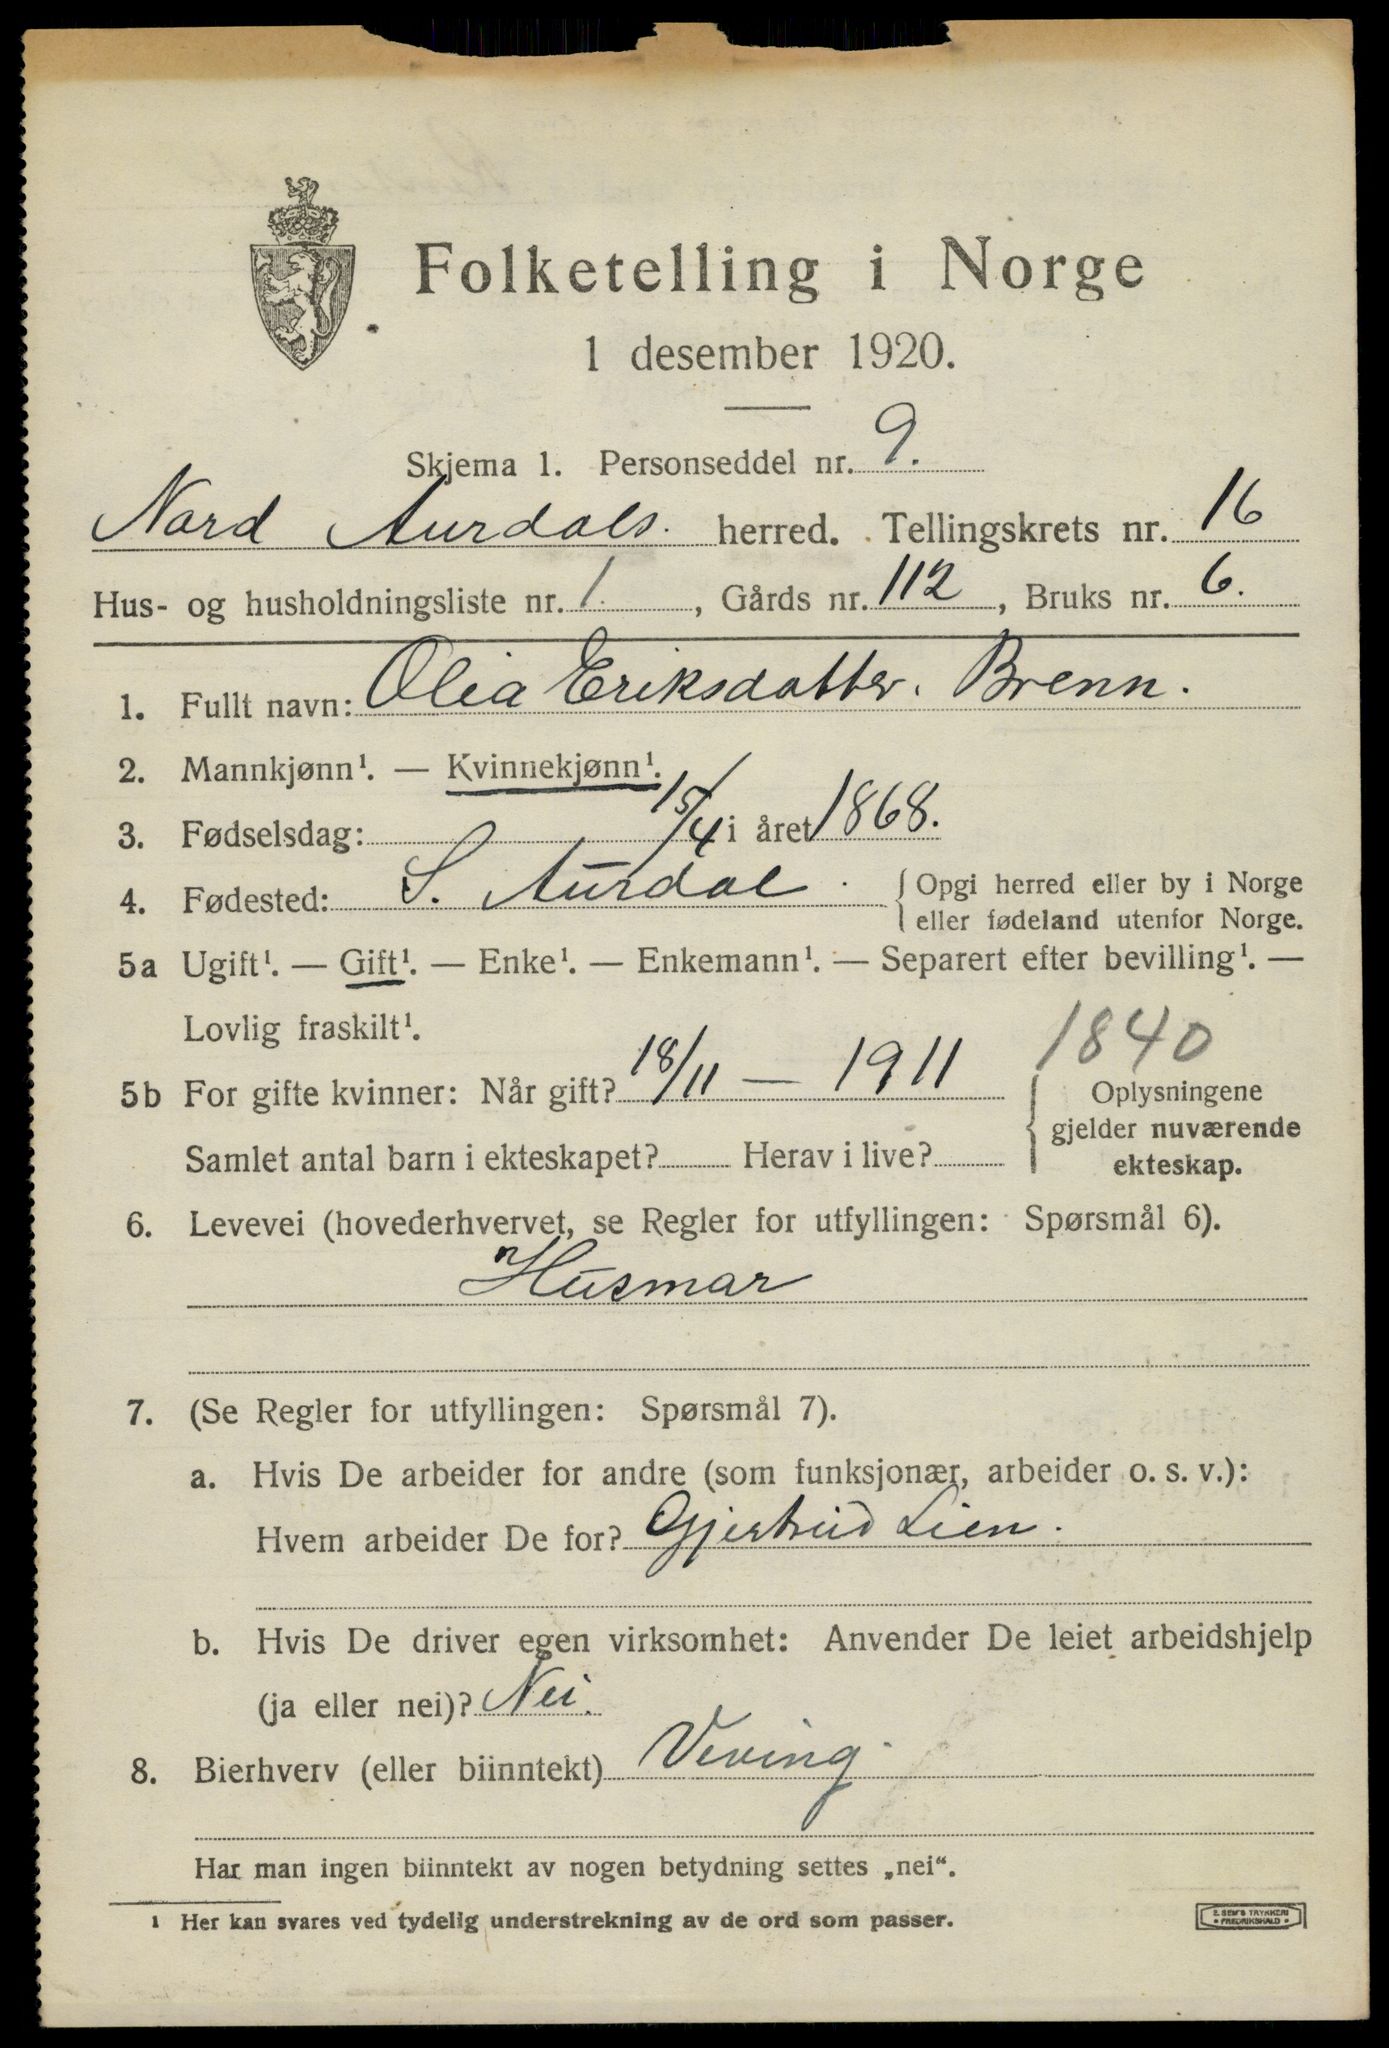 Folketelling i Norge
1 desember 1920.
Skjema 1. Personseddel nr. 9.
Nord Aurdals. herred. Tellingskrets nr. 16
Hus- og husholdningsliste nr. 1. , Gårds nr. 112 , Bruks nr. 6.
1. Fullt navn: Olia Eriksdatter. Brenn.
2. Mannkjønn¹. — Kvinnekjønn¹.
3. Fødselsdag: 15/4 i året 1868.
4. Fødested: S. Aurdal. { Opgi herred eller by i Norge
eller fødeland utenfor Norge.
5a Ugift¹. — Gift¹. — Enke¹. — Enkemann¹. — Separert efter bevilling¹. —
Lovlig fraskilt¹.
1840
5b For gifte kvinner: Når gift? 18/11 — 1911
Samlet antal barn i ekteskapet? Herav i live?
{ Oplysningene
gjelder nuværende
ekteskap.
6. Levevei (hovederhvervet, se Regler for utfyllingen: Spørsmål 6).
Husmor
7. (Se Regler for utfyllingen: Spørsmål 7).
a. Hvis De arbeider for andre (som funksjonær, arbeider o. s. v.):
Hvem arbeider De for? Gjertrud Lien.
b. Hvis De driver egen virksomhet: Anvender De leiet arbeidshjelp
(ja eller nei)? Nei.
8. Bierhverv (eller biinntekt) Veving.
Har man ingen biinntekt av nogen betydning settes „nei“.
¹ Her kan svares ved tydelig understrekning av de ord som passer.
E. SEM'S TRYKKERI
• FREDRIKSHALD •